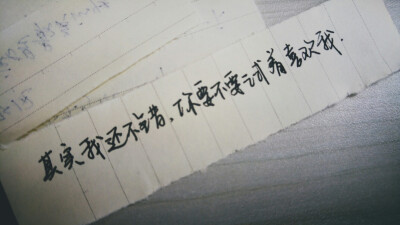 其实我还不错,你要不要试着喜欢我.